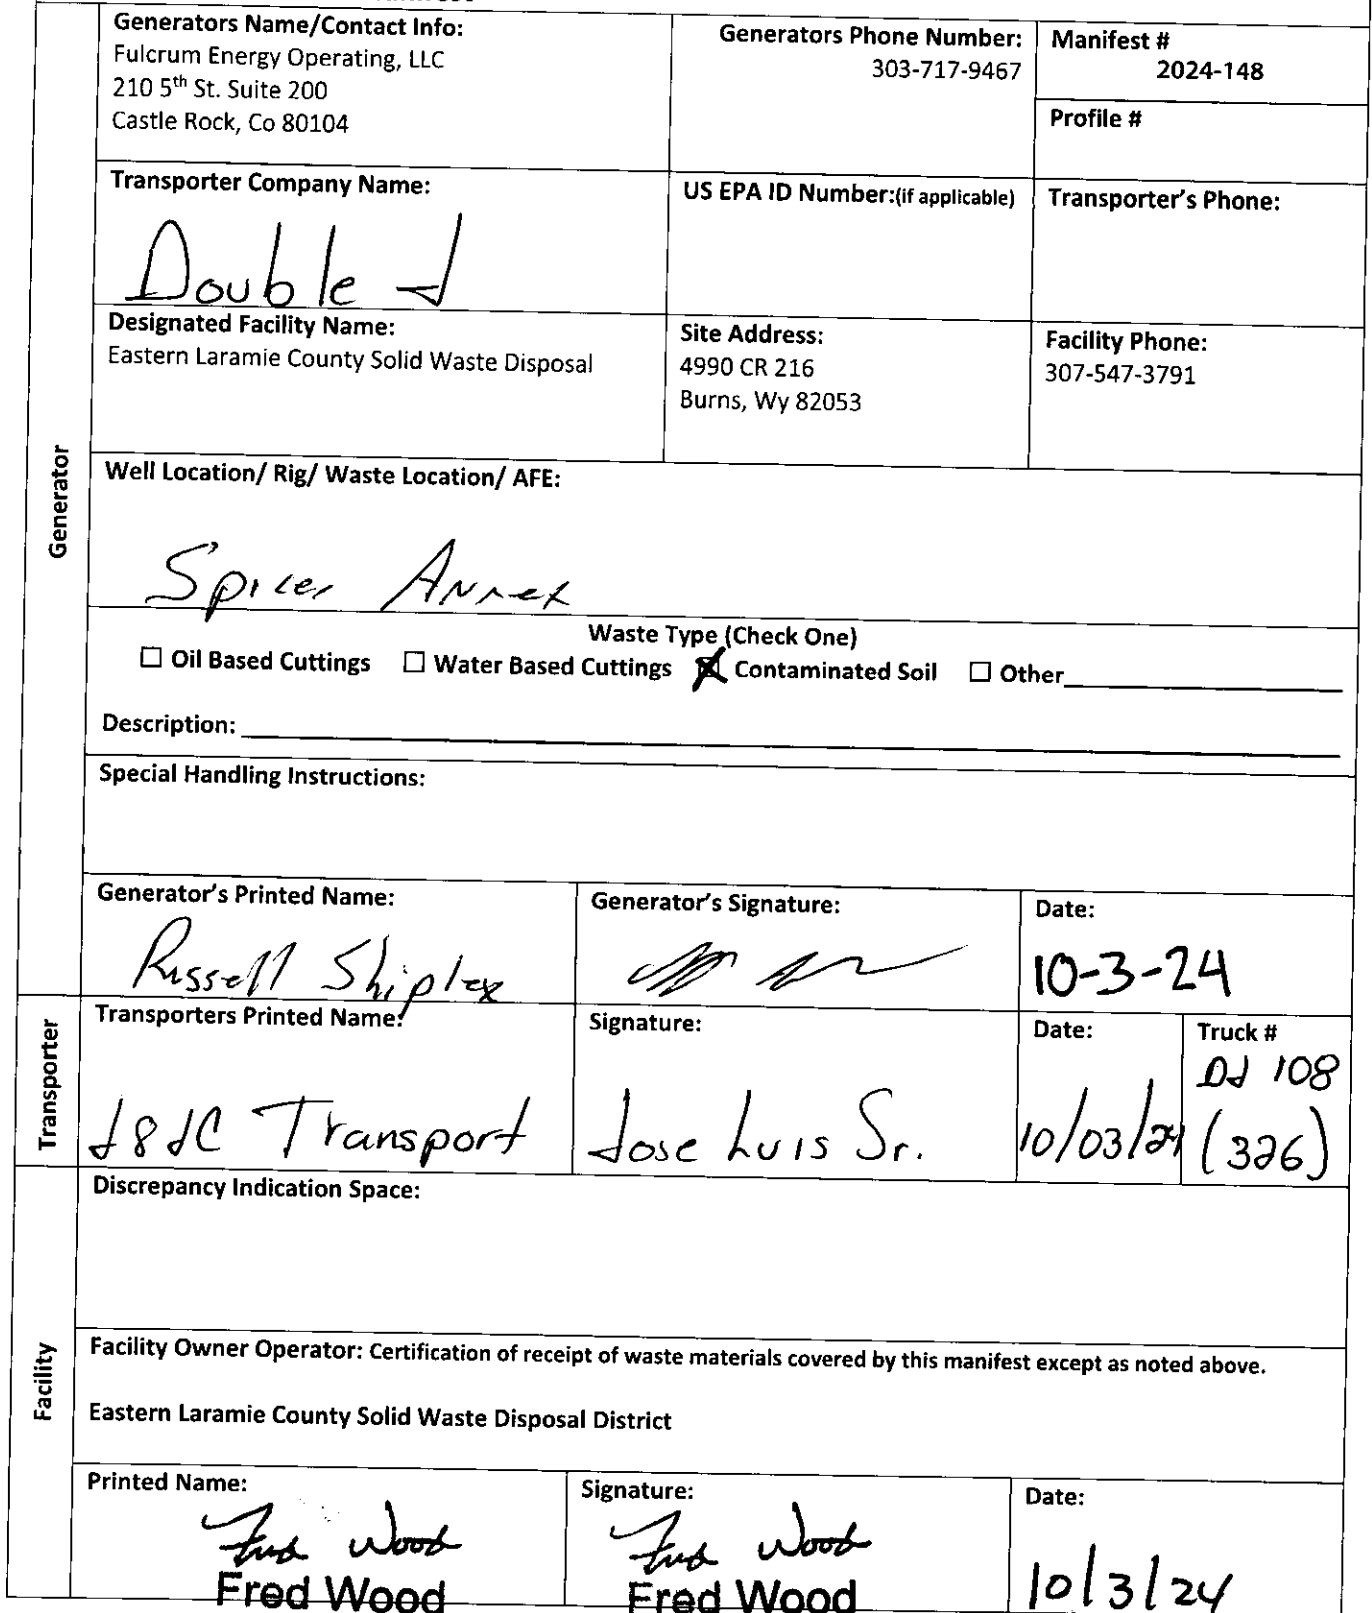 Generators Name/Contact Info:
Fulcrum Energy Operating, LLC
210 5th St. Suite 200
Castle Rock, Co 80104
Generators Phone Number:
303-717-9467
Manifest #
2024-148
Profile #
Transporter Company Name:
Double J
US EPA ID Number:(if applicable)
Transporter's Phone:
Designated Facility Name:
Eastern Laramie County Solid Waste Disposal
Site Address:
4990 CR 216
Burns, Wy 82053
Facility Phone:
307-547-3791
Generator
Well Location/ Rig/ Waste Location/ AFE:
Spicer Annex
Waste Type (Check One)
☐ Oil Based Cuttings ☐ Water Based Cuttings ☒ Contaminated Soil ☐ Other
Description:
Special Handling Instructions:
Generator's Printed Name:
Russell Shipley
Generator's Signature:
Date:
10-3-24
Transporter
Transporters Printed Name:
J&JC Transport
Signature:
Jose Luis Sr.
Date:
10/03/24
Truck #
DJ 108
(326)
Facility
Discrepancy Indication Space:
Facility Owner Operator: Certification of receipt of waste materials covered by this manifest except as noted above.
Eastern Laramie County Solid Waste Disposal District
Printed Name:
Fred Wood
Fred Wood
Signature:
Fred Wood
Fred Wood
Date:
10/3/24